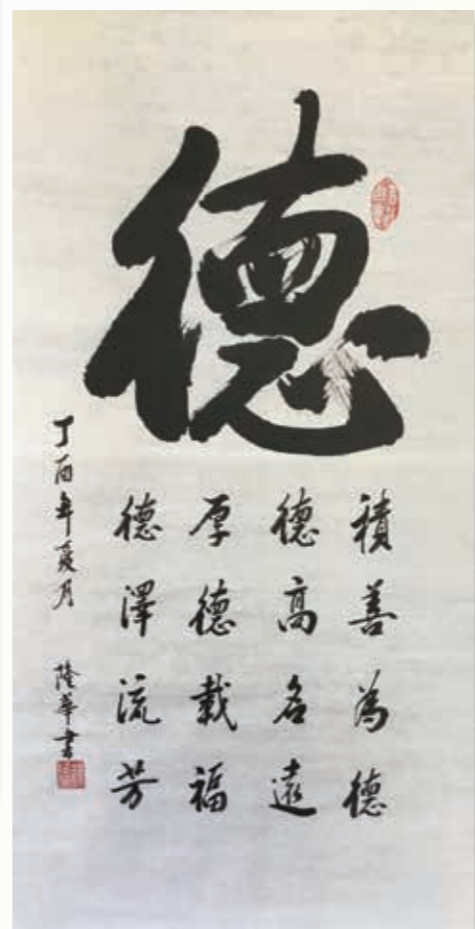 德
積善為德
德高名遠
厚德載福
德澤流芳
丁酉年夏月
隆華書